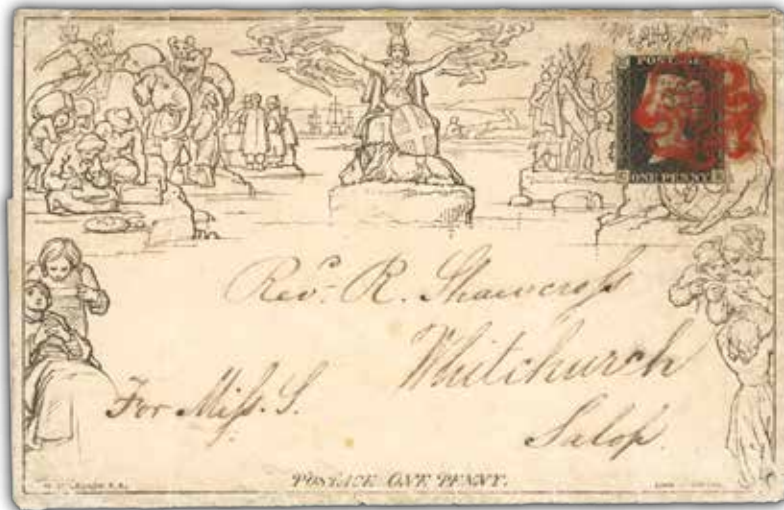 POSTAGE
ONE PENNY
Revd. R. Shawcross
Whitchurch
For Miss. S.
Salop.
POSTAGE ONE PENNY.